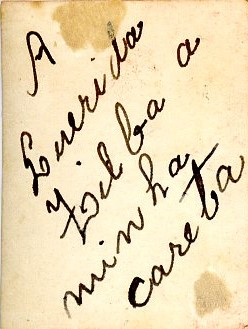 A
Querida
Zilba a
minha
careta